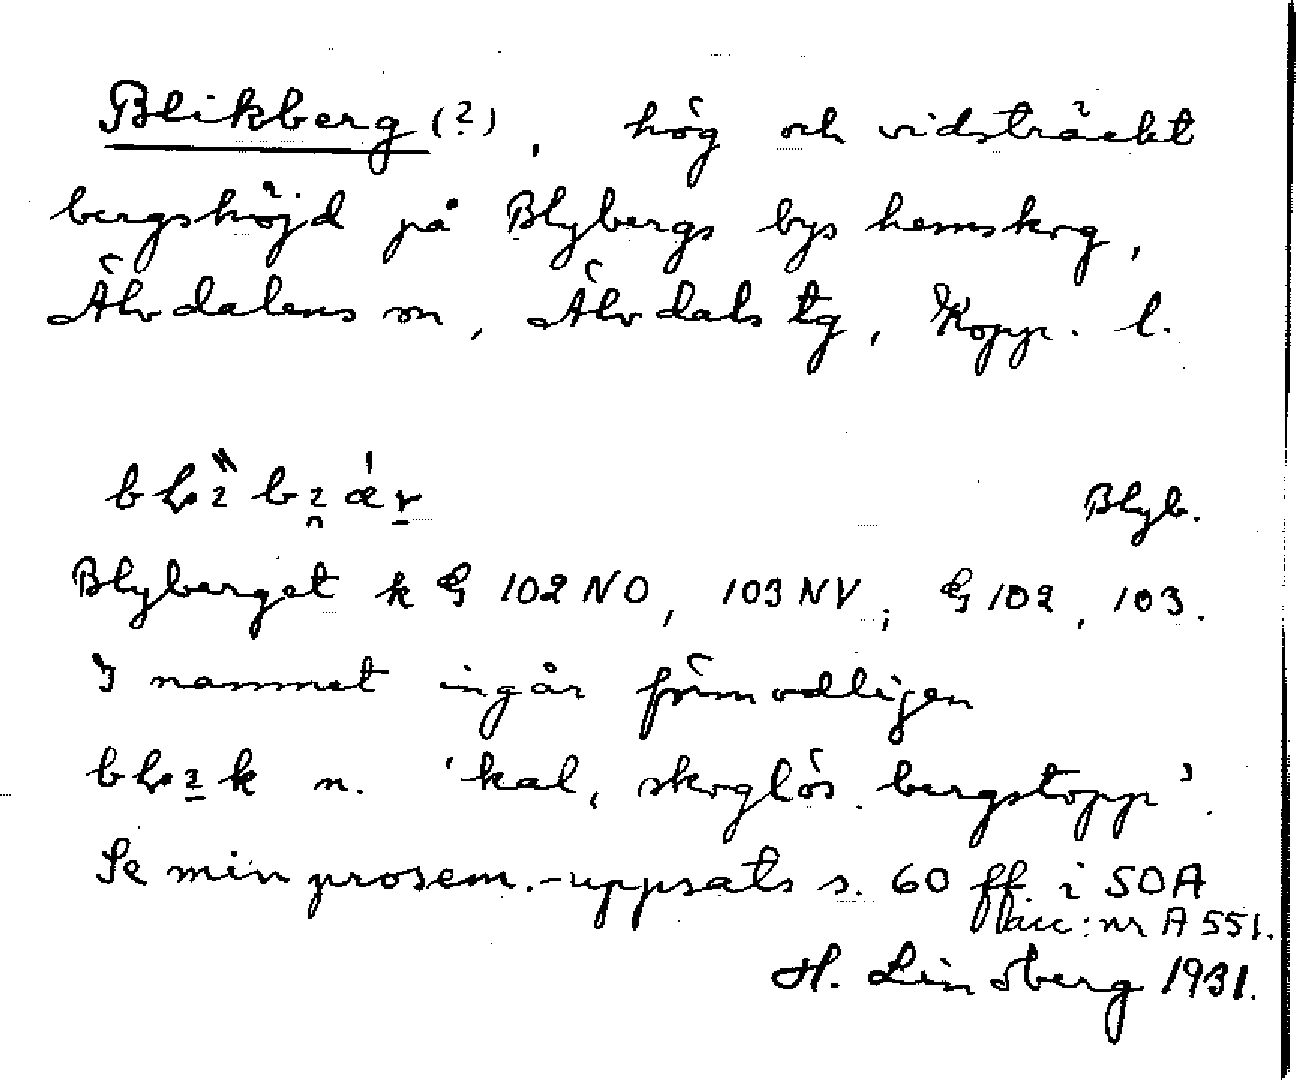 Blikberg (?), hög och vidsträckt
bergshöjd på Blybergs bys hemskog,
Älvdalens sn, Älvdals tg, Kopp. l.
Blyb.
Blyberget k G 102 NO, 103 NV; G 102, 103.
I namnet ingår förmodligen
n. 'kal, skoglös bergstopp'.
Se min prosem.-uppsats s. 60 ff. i SOA
acc: nr A 551.
H. Lindberg 1931.